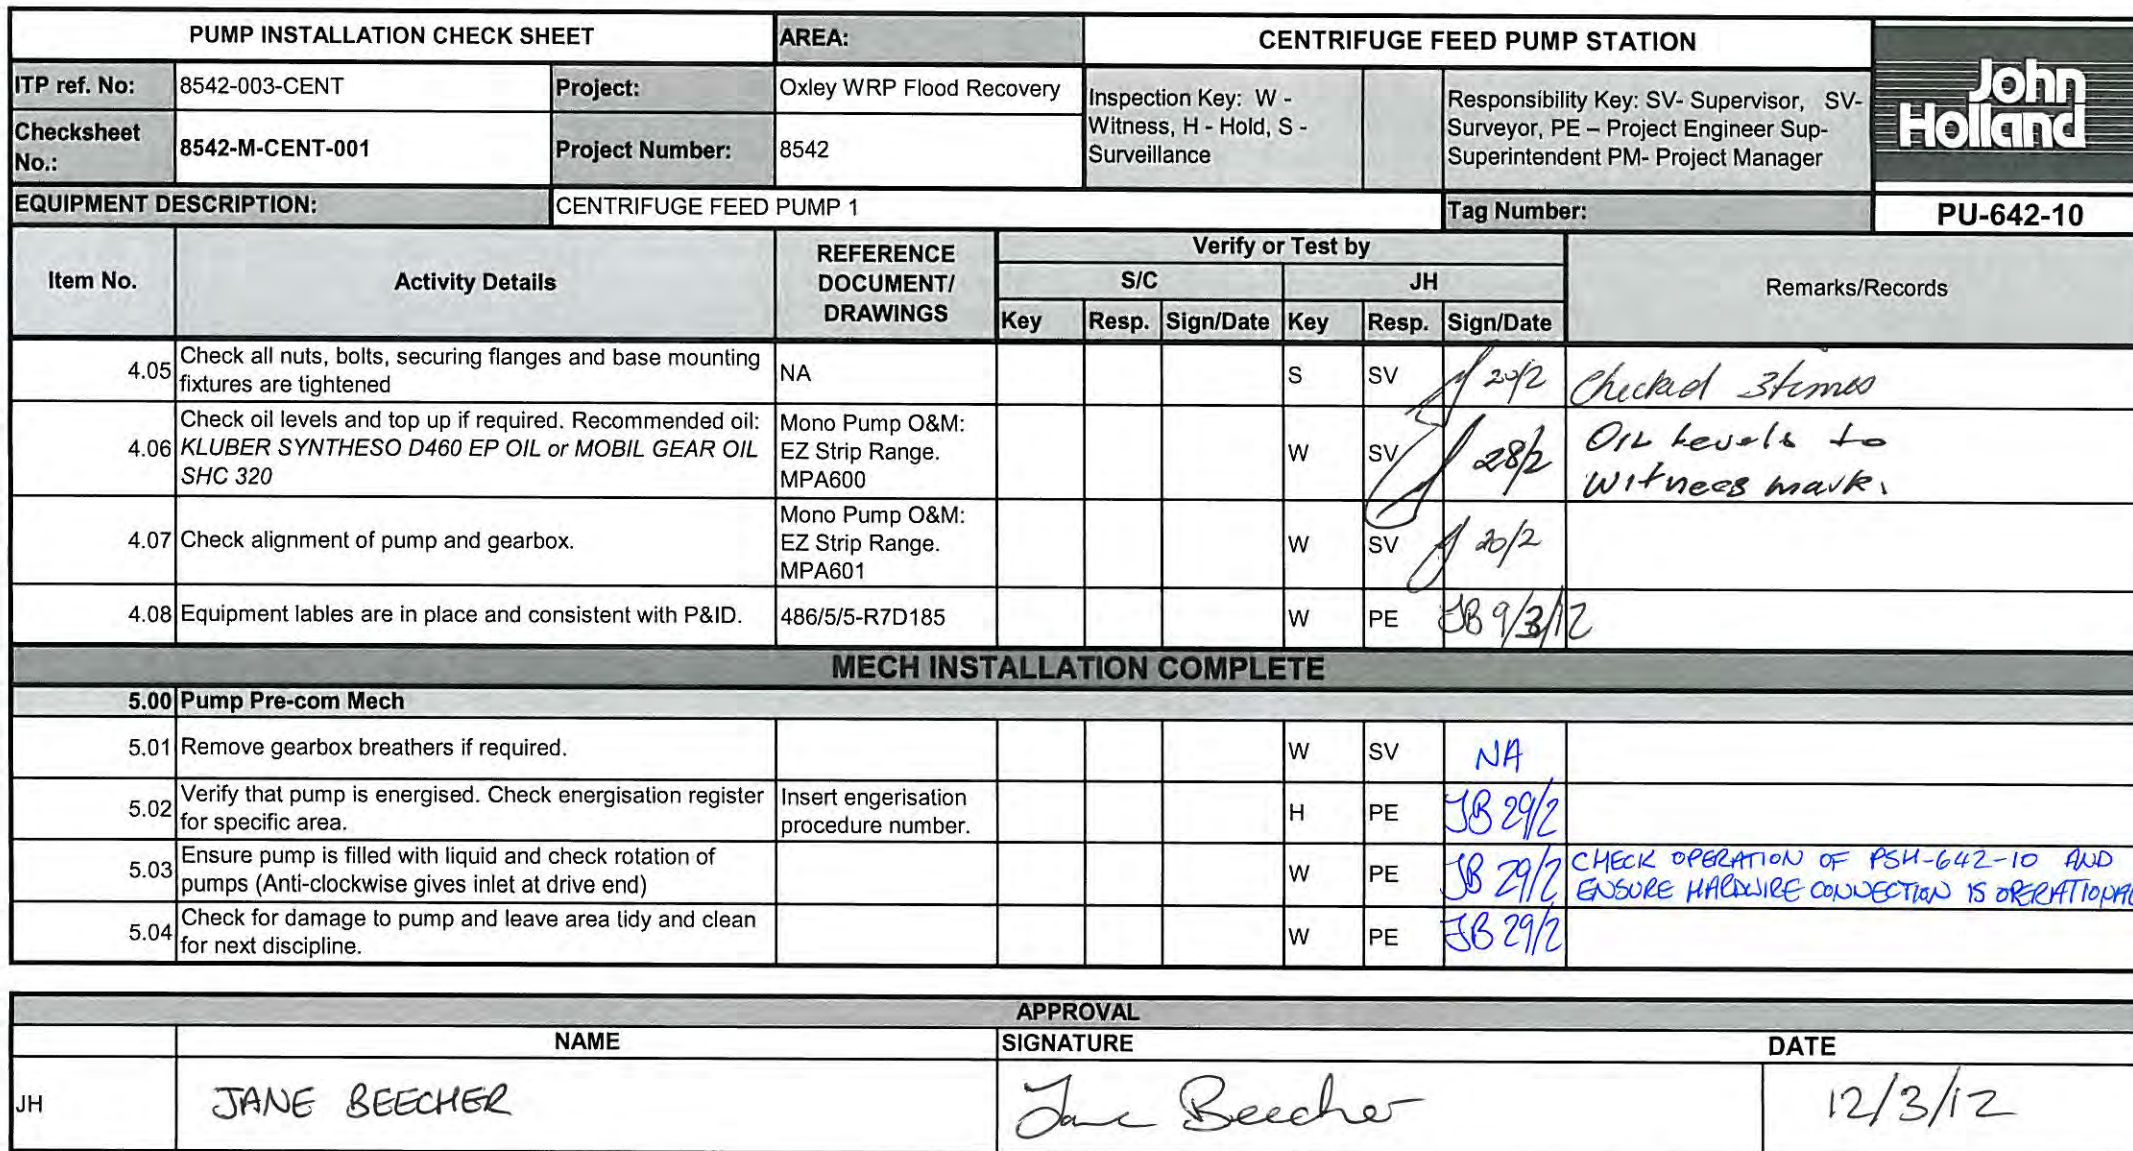 PUMP INSTALLATION CHECK SHEET AREA: CENTRIFUGE FEED PUMP STATION
John Holland
ITP ref. No: 8542-003-CENT Project: Oxley WRP Flood Recovery
Inspection Key: W -
Witness, H - Hold, S -
Surveillance
Responsibility Key: SV- Supervisor, SV-
Surveyor, PE – Project Engineer Sup-
Superintendent PM- Project Manager
Checksheet
No.:
8542-M-CENT-001 Project Number: 8542
EQUIPMENT DESCRIPTION: CENTRIFUGE FEED PUMP 1 Tag Number: PU-642-10
Item No. Activity Details
REFERENCE
DOCUMENT/
DRAWINGS
Verify or Test by
S/C JH
Key Resp. Sign/Date Key Resp. Sign/Date
Remarks/Records
4.05 Check all nuts, bolts, securing flanges and base mounting
fixtures are tightened
NA S SV 20/2 Checked 3times
4.06 Check oil levels and top up if required. Recommended oil:
KLUBER SYNTHESO D460 EP OIL or MOBIL GEAR OIL
SHC 320
Mono Pump O&M:
EZ Strip Range.
MPA600
W SV 28/2
OIL Levels to
Witness mark.
4.07 Check alignment of pump and gearbox.
Mono Pump O&M:
EZ Strip Range.
MPA601
W SV 20/2
4.08 Equipment lables are in place and consistent with P&ID. 486/5/5-R7D185 W PE JB 9/3/12
MECH INSTALLATION COMPLETE
5.00 Pump Pre-com Mech
5.01 Remove gearbox breathers if required. W SV NA
5.02 Verify that pump is energised. Check energisation register
for specific area.
Insert engerisation
procedure number.
H PE JB 29/2
5.03 Ensure pump is filled with liquid and check rotation of
pumps (Anti-clockwise gives inlet at drive end)
W PE JB 29/2
CHECK OPERATION OF PSH-642-10 AND
ENSURE HARDWIRE CONNECTION IS OPERATIONAL
5.04 Check for damage to pump and leave area tidy and clean
for next discipline.
W PE JB 29/2
APPROVAL
NAME SIGNATURE DATE
JH JANE BEECHER Jane Beecher 12/3/12